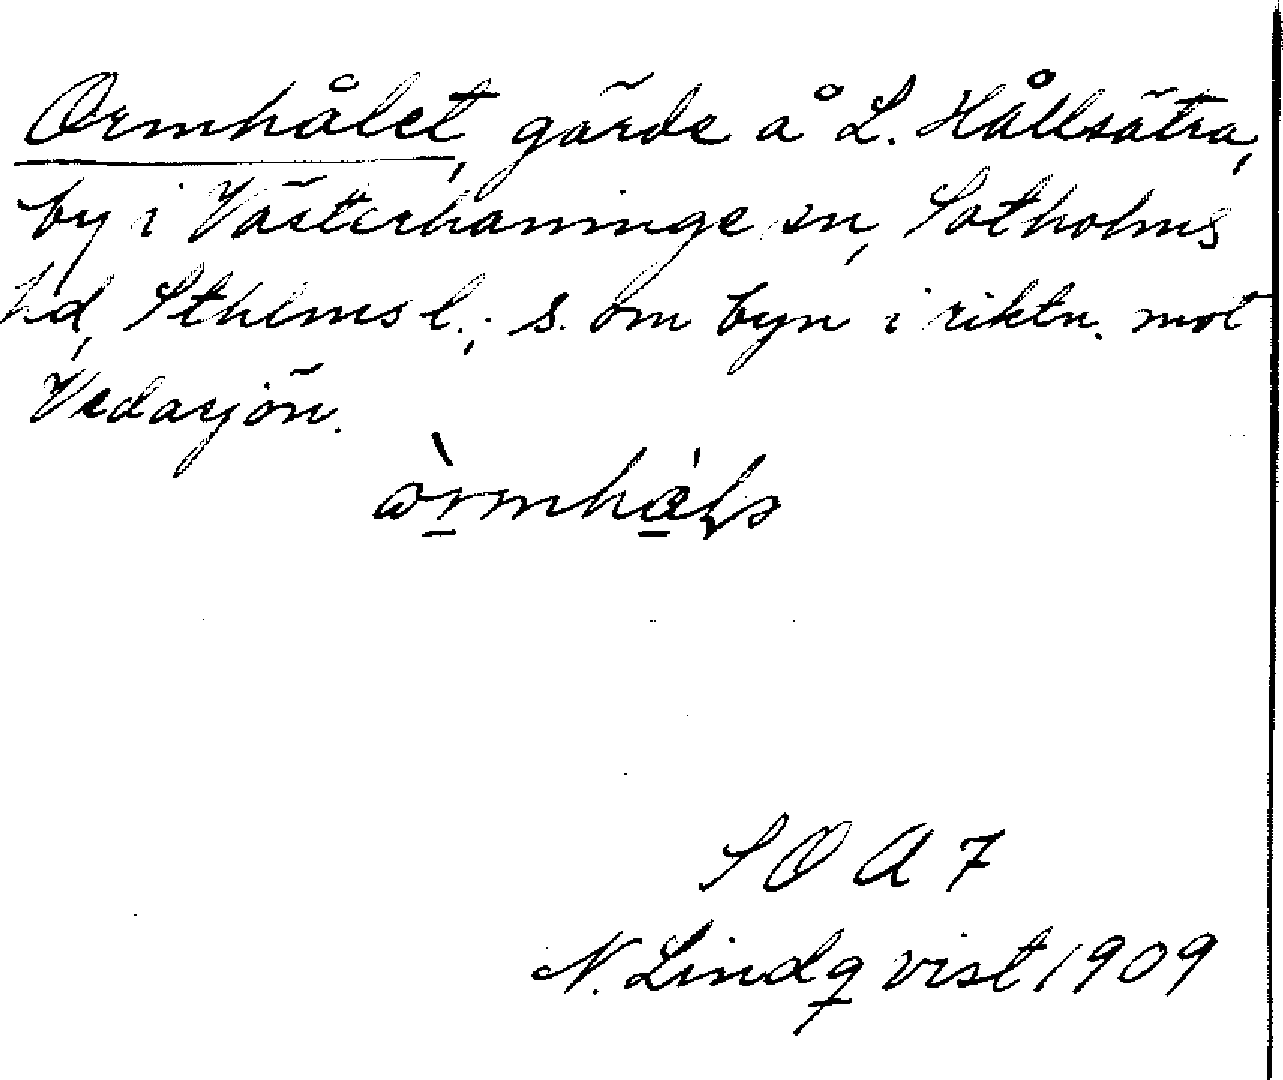 Ormhålet, gärde å L. Hållsätra,
by i Västerhaninge sn, Sotholms
hd, Sthlms l.; s. om byn i riktn. mot
Vedasjön.
S O A 7
N. Lindqvist 1909